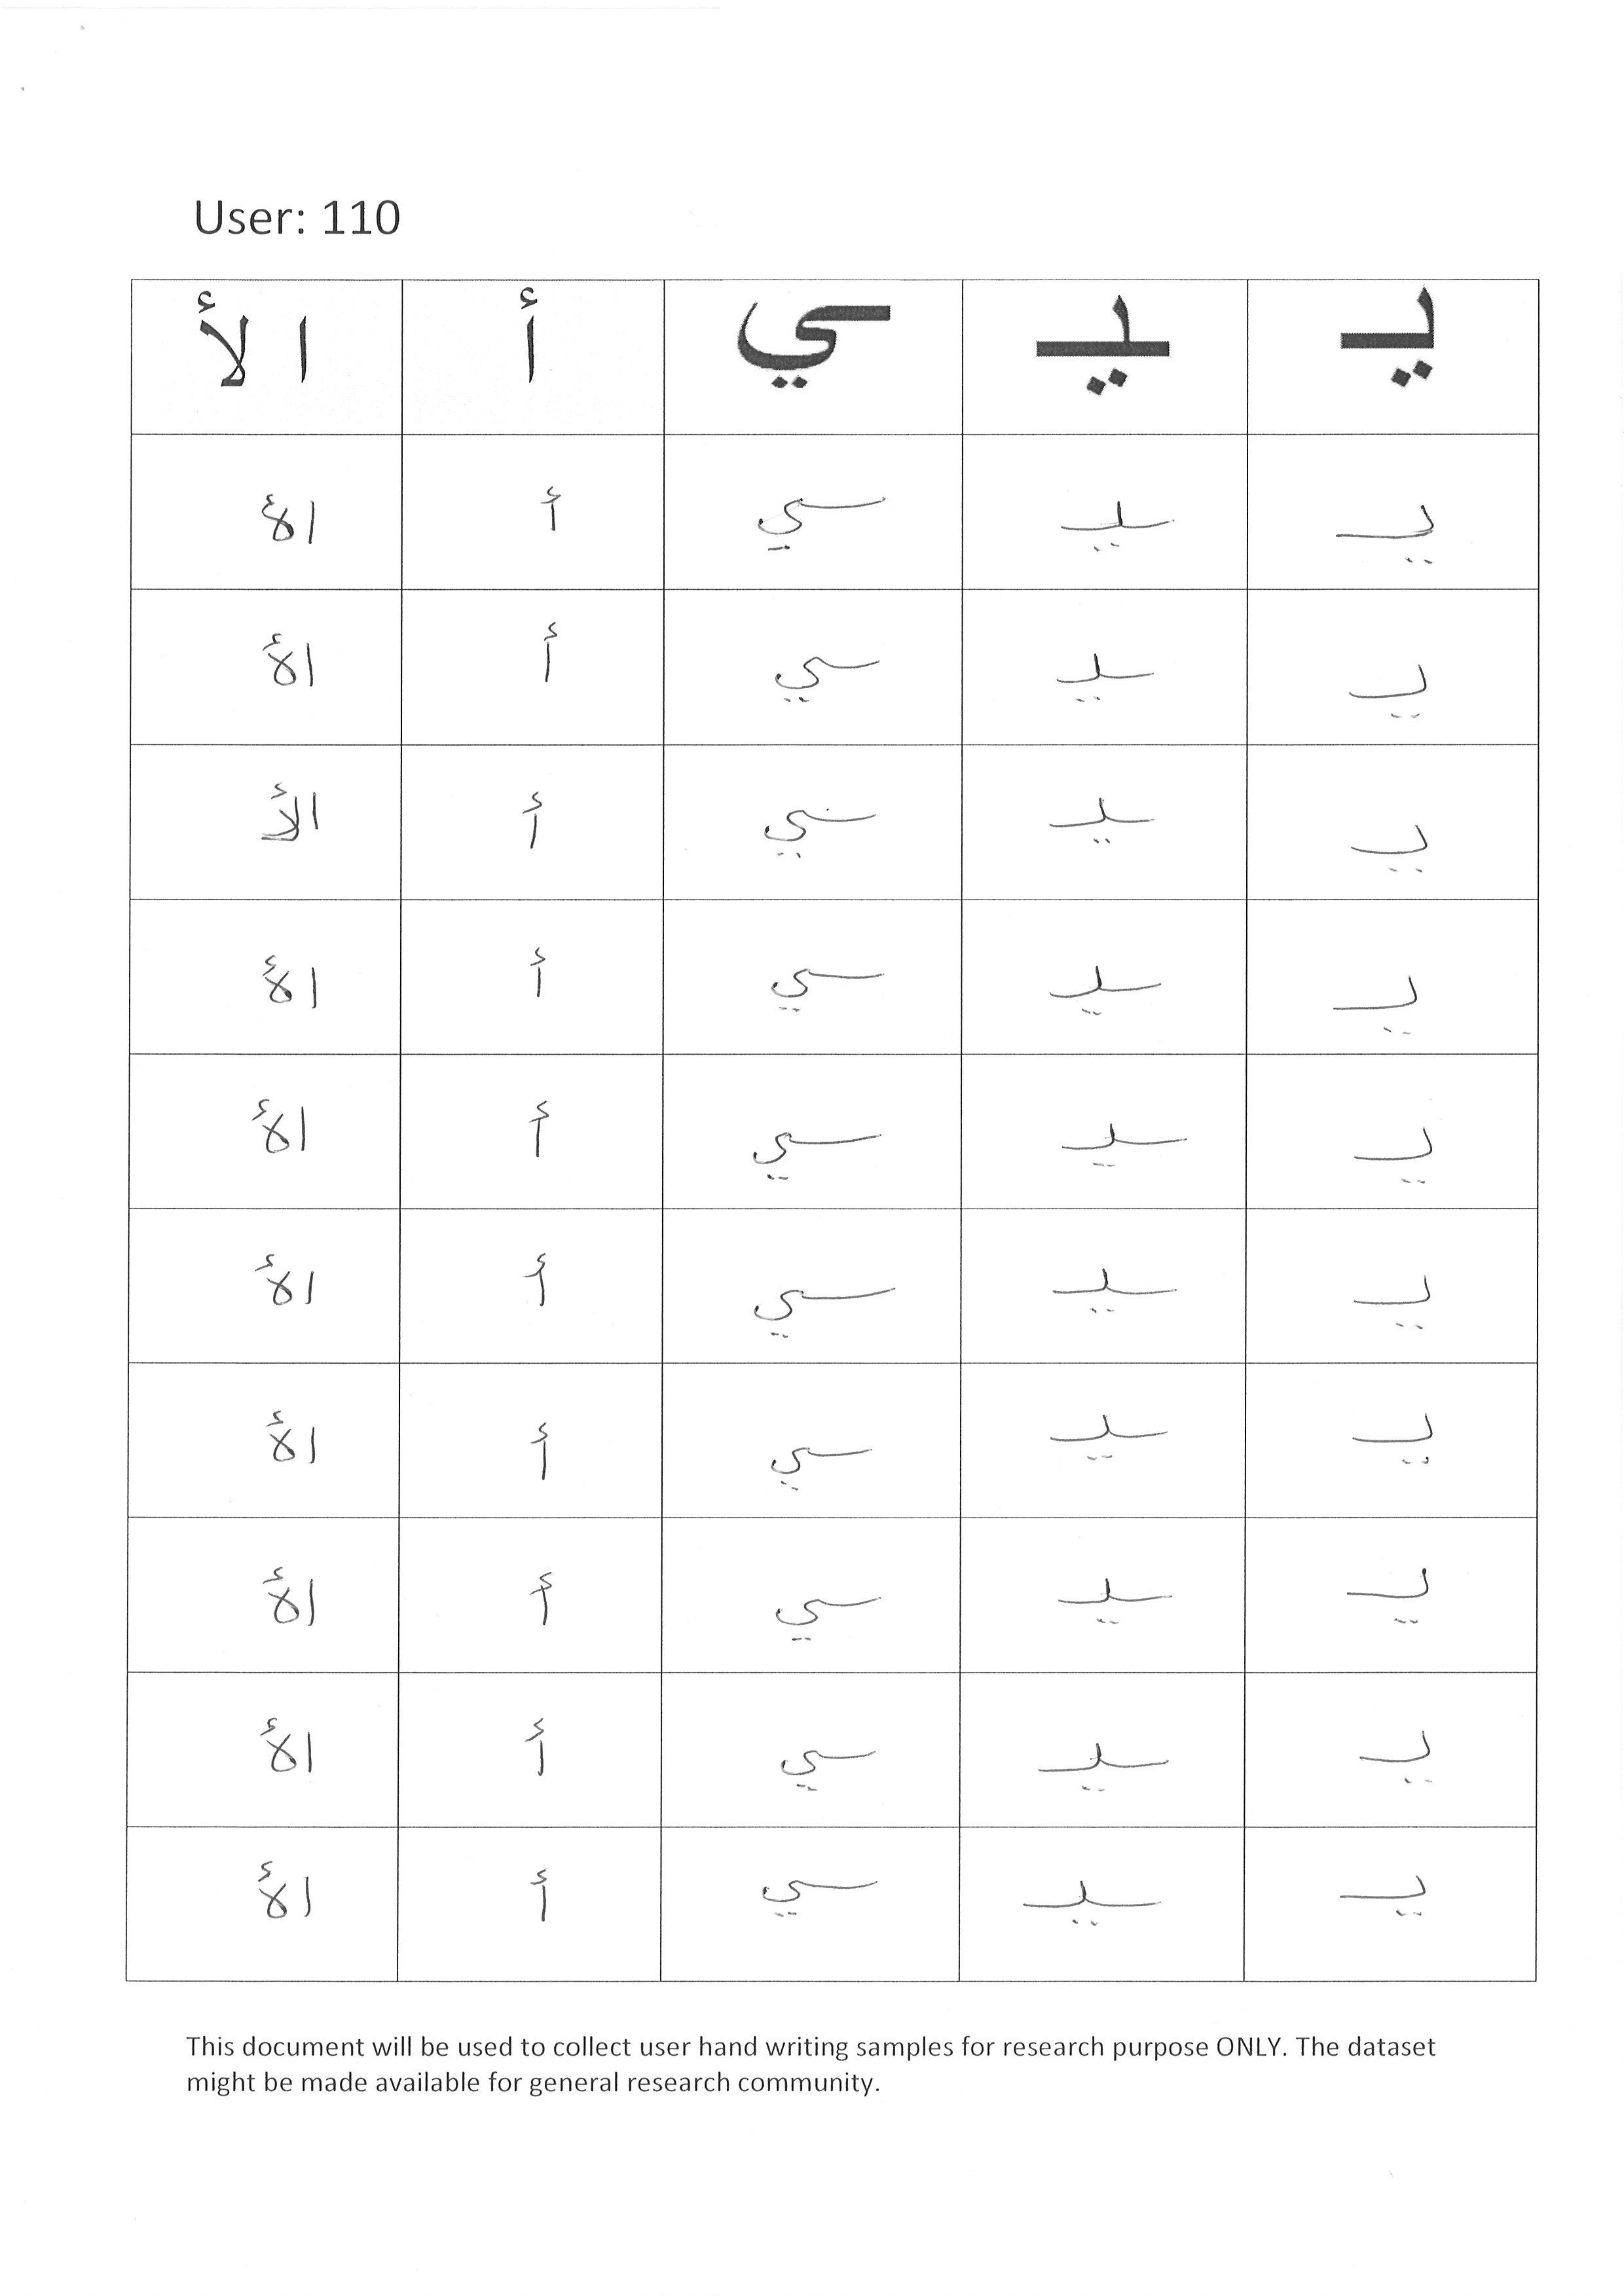 User: 110
يـ ـيـ ـي أ ا لأ
يـ ـيـ ـي أ الأ
يـ ـيـ ـي أ الأ
يـ ـيـ ـي أ الأ
يـ ـيـ ـي أ الأ
يـ ـيـ ـي أ الأ
يـ ـيـ ـي أ الأ
يـ ـيـ ـي أ الأ
يـ ـيـ ـي أ الأ
يـ ـيـ ـي أ الأ
يـ ـيـ ـي أ الأ
This document will be used to collect user hand writing samples for research purpose ONLY. The dataset
might be made available for general research community.